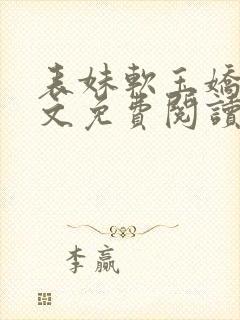 表妹軟玉嬌
文免費閱讀
李贏